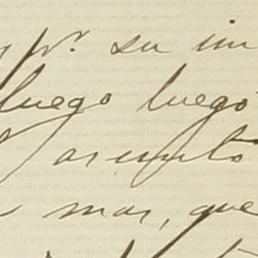 y pr. su im
luego luego
asunto
mas, que